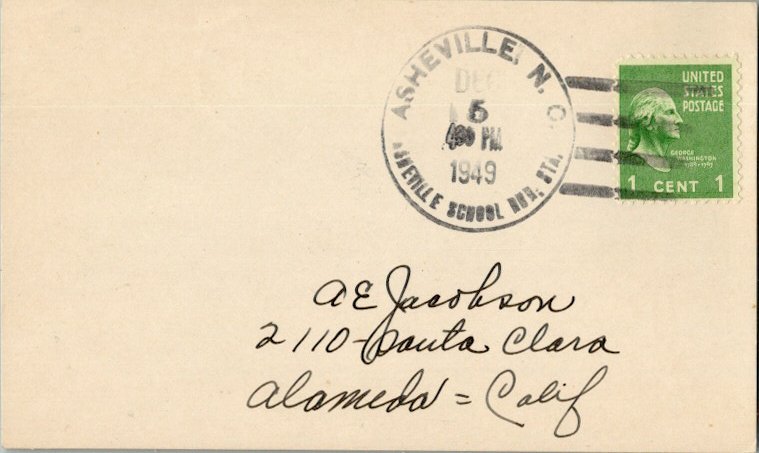 ASHEVILLE, N. C.
DEC
5
PM
1949
ASHEVILLE SCHOOL RUR. STA.
UNITED
STATES
POSTAGE
GEORGE
WASHINGTON
1789-1797
1 CENT 1
A E Jacobson
2110-Santa Clara
Alameda = Calif